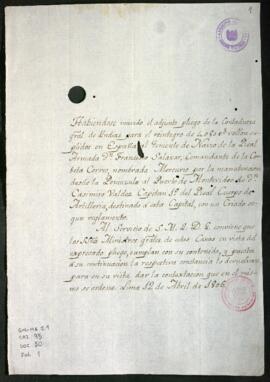 1
Habiendose venido el adjunto pliego de la Contaduria
gral de Indias para el reintegro de
suplidos en España al Teniente de Navio de la Real
Armada Dn Francisco Salazar, Comandante de la
Corbeta Correo, nombrada Mercurio por la manutencion
desde la Peninsula al Puerto de Montevideo de Dn
Casimiro Valdez Capitan 1º del Real Cuerpo de
Artilleria, destinado á esta Capital, con un Criado se-
gun reglamento.
Al Servicio de S. M. conviene que
los Ministros grales de estas Caxas en vista del
expresado pliego, cumplan con su contenido, y puesta
á su continuacion la respectiva constancia lo devuelvan
para en su vista dar la contestacion que en el mis-
mo se ordena. Lima 12 de Abril de 1806